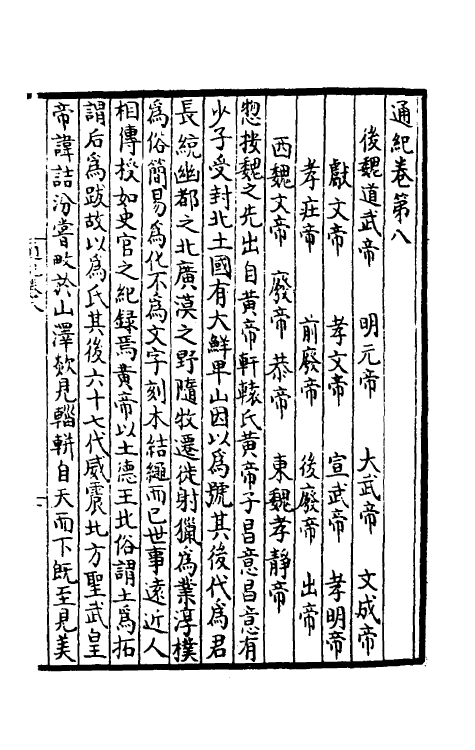 通紀卷第八
後魏道武帝　明元帝　大武帝　文成帝
獻文帝　孝文帝　宣武帝　孝明帝
孝莊帝　前廢帝　後廢帝　出帝
西魏文帝　廢帝　恭帝　東魏孝靜帝
揔按魏之先出自黃帝軒轅氏黃帝子昌意昌意有
少子受封北土國有大鮮卑山因以為號其後代為君
長統幽都之北廣漠之野隨牧遷徙射獵為業淳樸
為俗簡易為化不為文字刻木結繩而已世事遠近人
相傳授如史官之紀録焉黃帝以土德王北俗謂土為拓
謂后為跋故以為氏其後六十七代威震北方聖武皇
帝諱詰汾嘗畋於山澤欻見輜軿自天而下既至見美